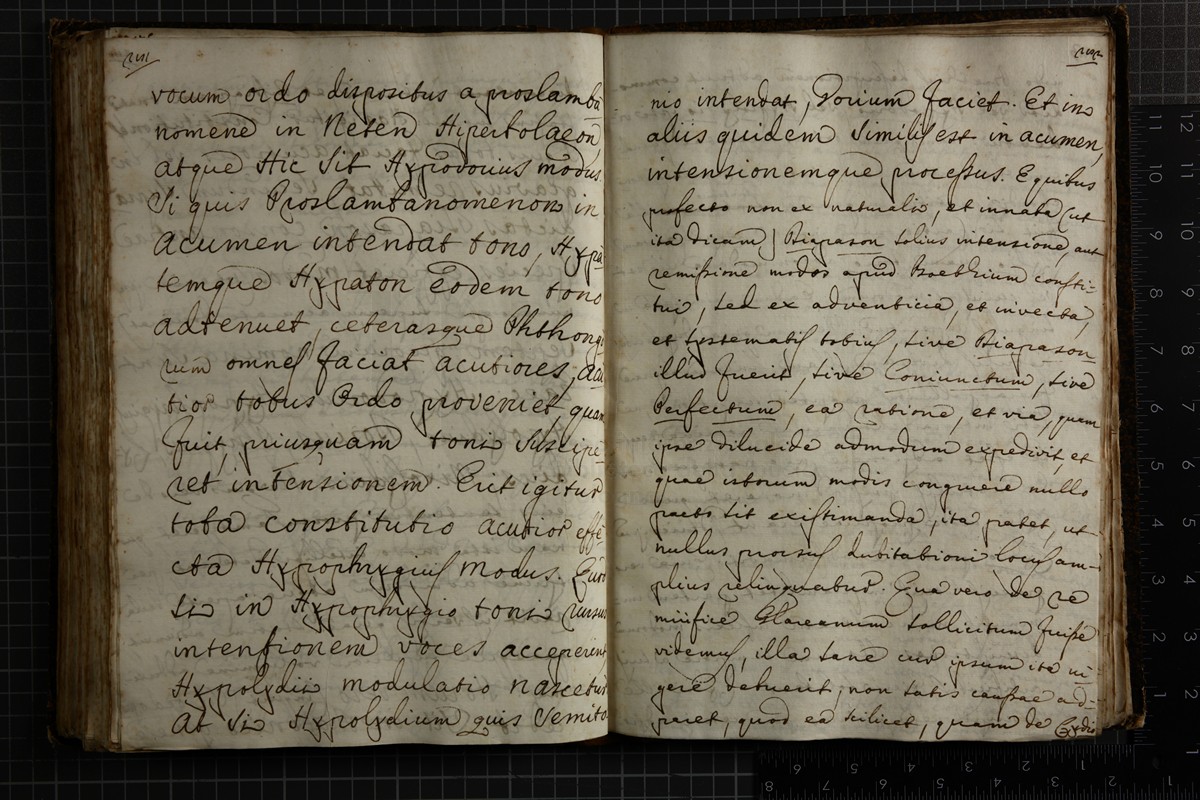 vocum ordo dispositus a proslamba
nomene in Neten Hiperbolaeon,
atque Hic Sit Hypodorius modus.
Si quis Proslambanomenon in
acumen intendat tono, Hypa
temque Hypaton eodem tono
adtenuet, ceterasque Phthongo
rum omnes faciat acutiores, acu
tior totus Ordo proveniet, quam
fuit, priusquam toni Suscipe
ret intensionem. Erit igitur
tota constitutio acutior effe
cta Hypophrygius modus. Quod
si in Hypophrygio toni rursus
intensionem voces acceperint
Hypolydii modulatio nascetur
At Si Hypolydium quis Semito
nio intendat, Dorium faciet. Et in
aliis quidem Similis est in acumen,
intensionemque processus. E quibus
profecto non ex naturalis, et innata (ut
ita dicam) Diapason totius intensione, aut
remissione modos apud Boethium consti-
tui, sed ex adventicia, et invecta,
et systematis totius, sive Diapason
illud fuerit, sive Coniunctum, sive
Perfectum, ea ratione, et via, quam
ipse dilucide admodum expedivit, et
quae istorum modis congruere nullo
pacto sit existimanda, ita patet, ut
nullus prorsus dubitationi locus am-
plius relinquatur. Qua vero de re
mirifice Glareanum sollicitum fuisse
videmus, illa sane cur ipsum ita an-
gere debuerit, non satis causae ad-
paret, quod ea scilicet, quam de Lydio